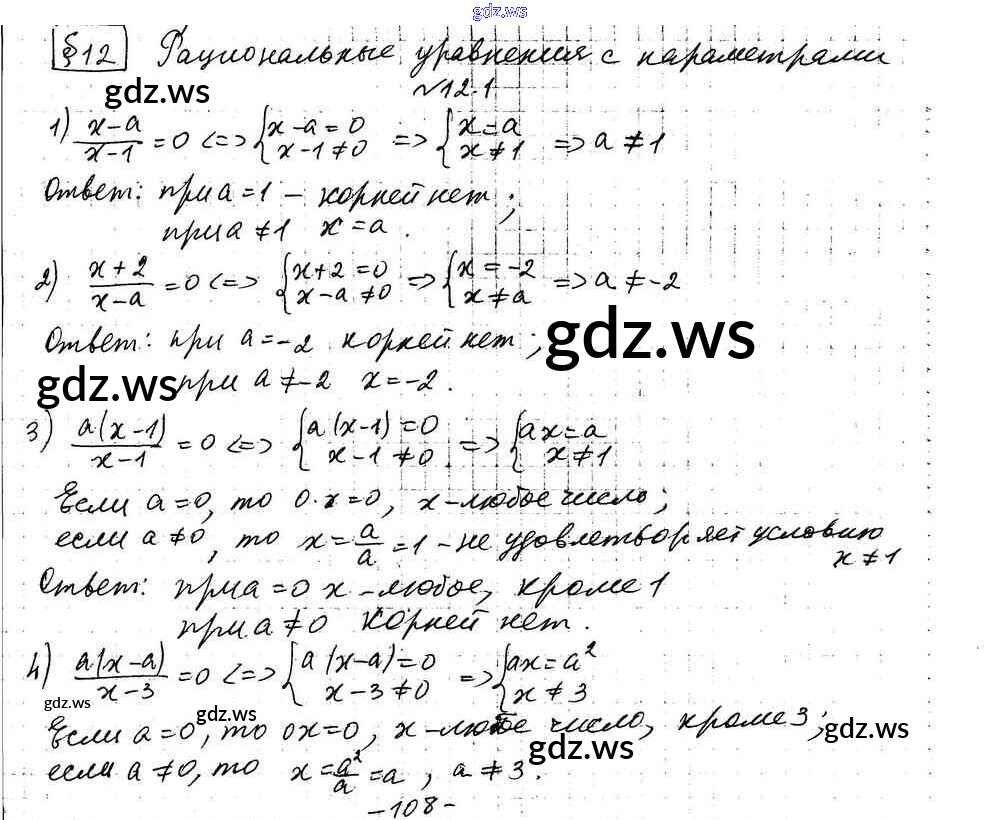 gdz.ws
§12 Рациональные уравнения с параметрами
gdz.ws
№12.1
1) (x-a)/(x-1) = 0 <=> {x-a=0 x-1≠0 => {x=a x≠1 => a≠1
Ответ: при a=1 – корней нет;
при a≠1 x=a.
2) (x+2)/(x-a) = 0 <=> {x+2=0 x-a≠0 => {x=-2 x≠a => a≠-2
Ответ: при a=-2 корней нет;
gdz.ws
при a≠-2 x=-2.
gdz.ws
3) (a(x-1))/(x-1) = 0 <=> {a(x-1)=0 x-1≠0 => {ax=a x≠1
Если a=0, то 0·x=0, x-любое число;
если a≠0, то x=a/a=1 – не удовлетворяет условию
x≠1
Ответ: при a=0 x-любое, кроме 1
при a≠0 корней нет.
4) (a(x-a))/(x-3) = 0 <=> {a(x-a)=0 x-3≠0 => {ax=a² x≠3
gdz.ws
gdz.ws
Если a=0, то 0x=0, x-любое число, кроме 3;
gdz.ws
gdz.ws
если a≠0, то x=a²/a=a, a≠3.
-108-